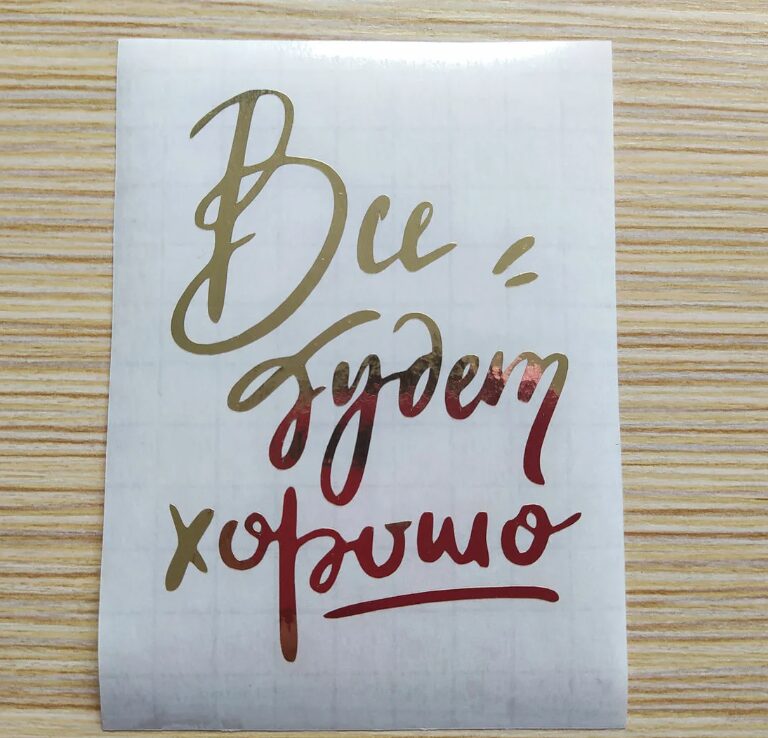 Все
будет
хорошо